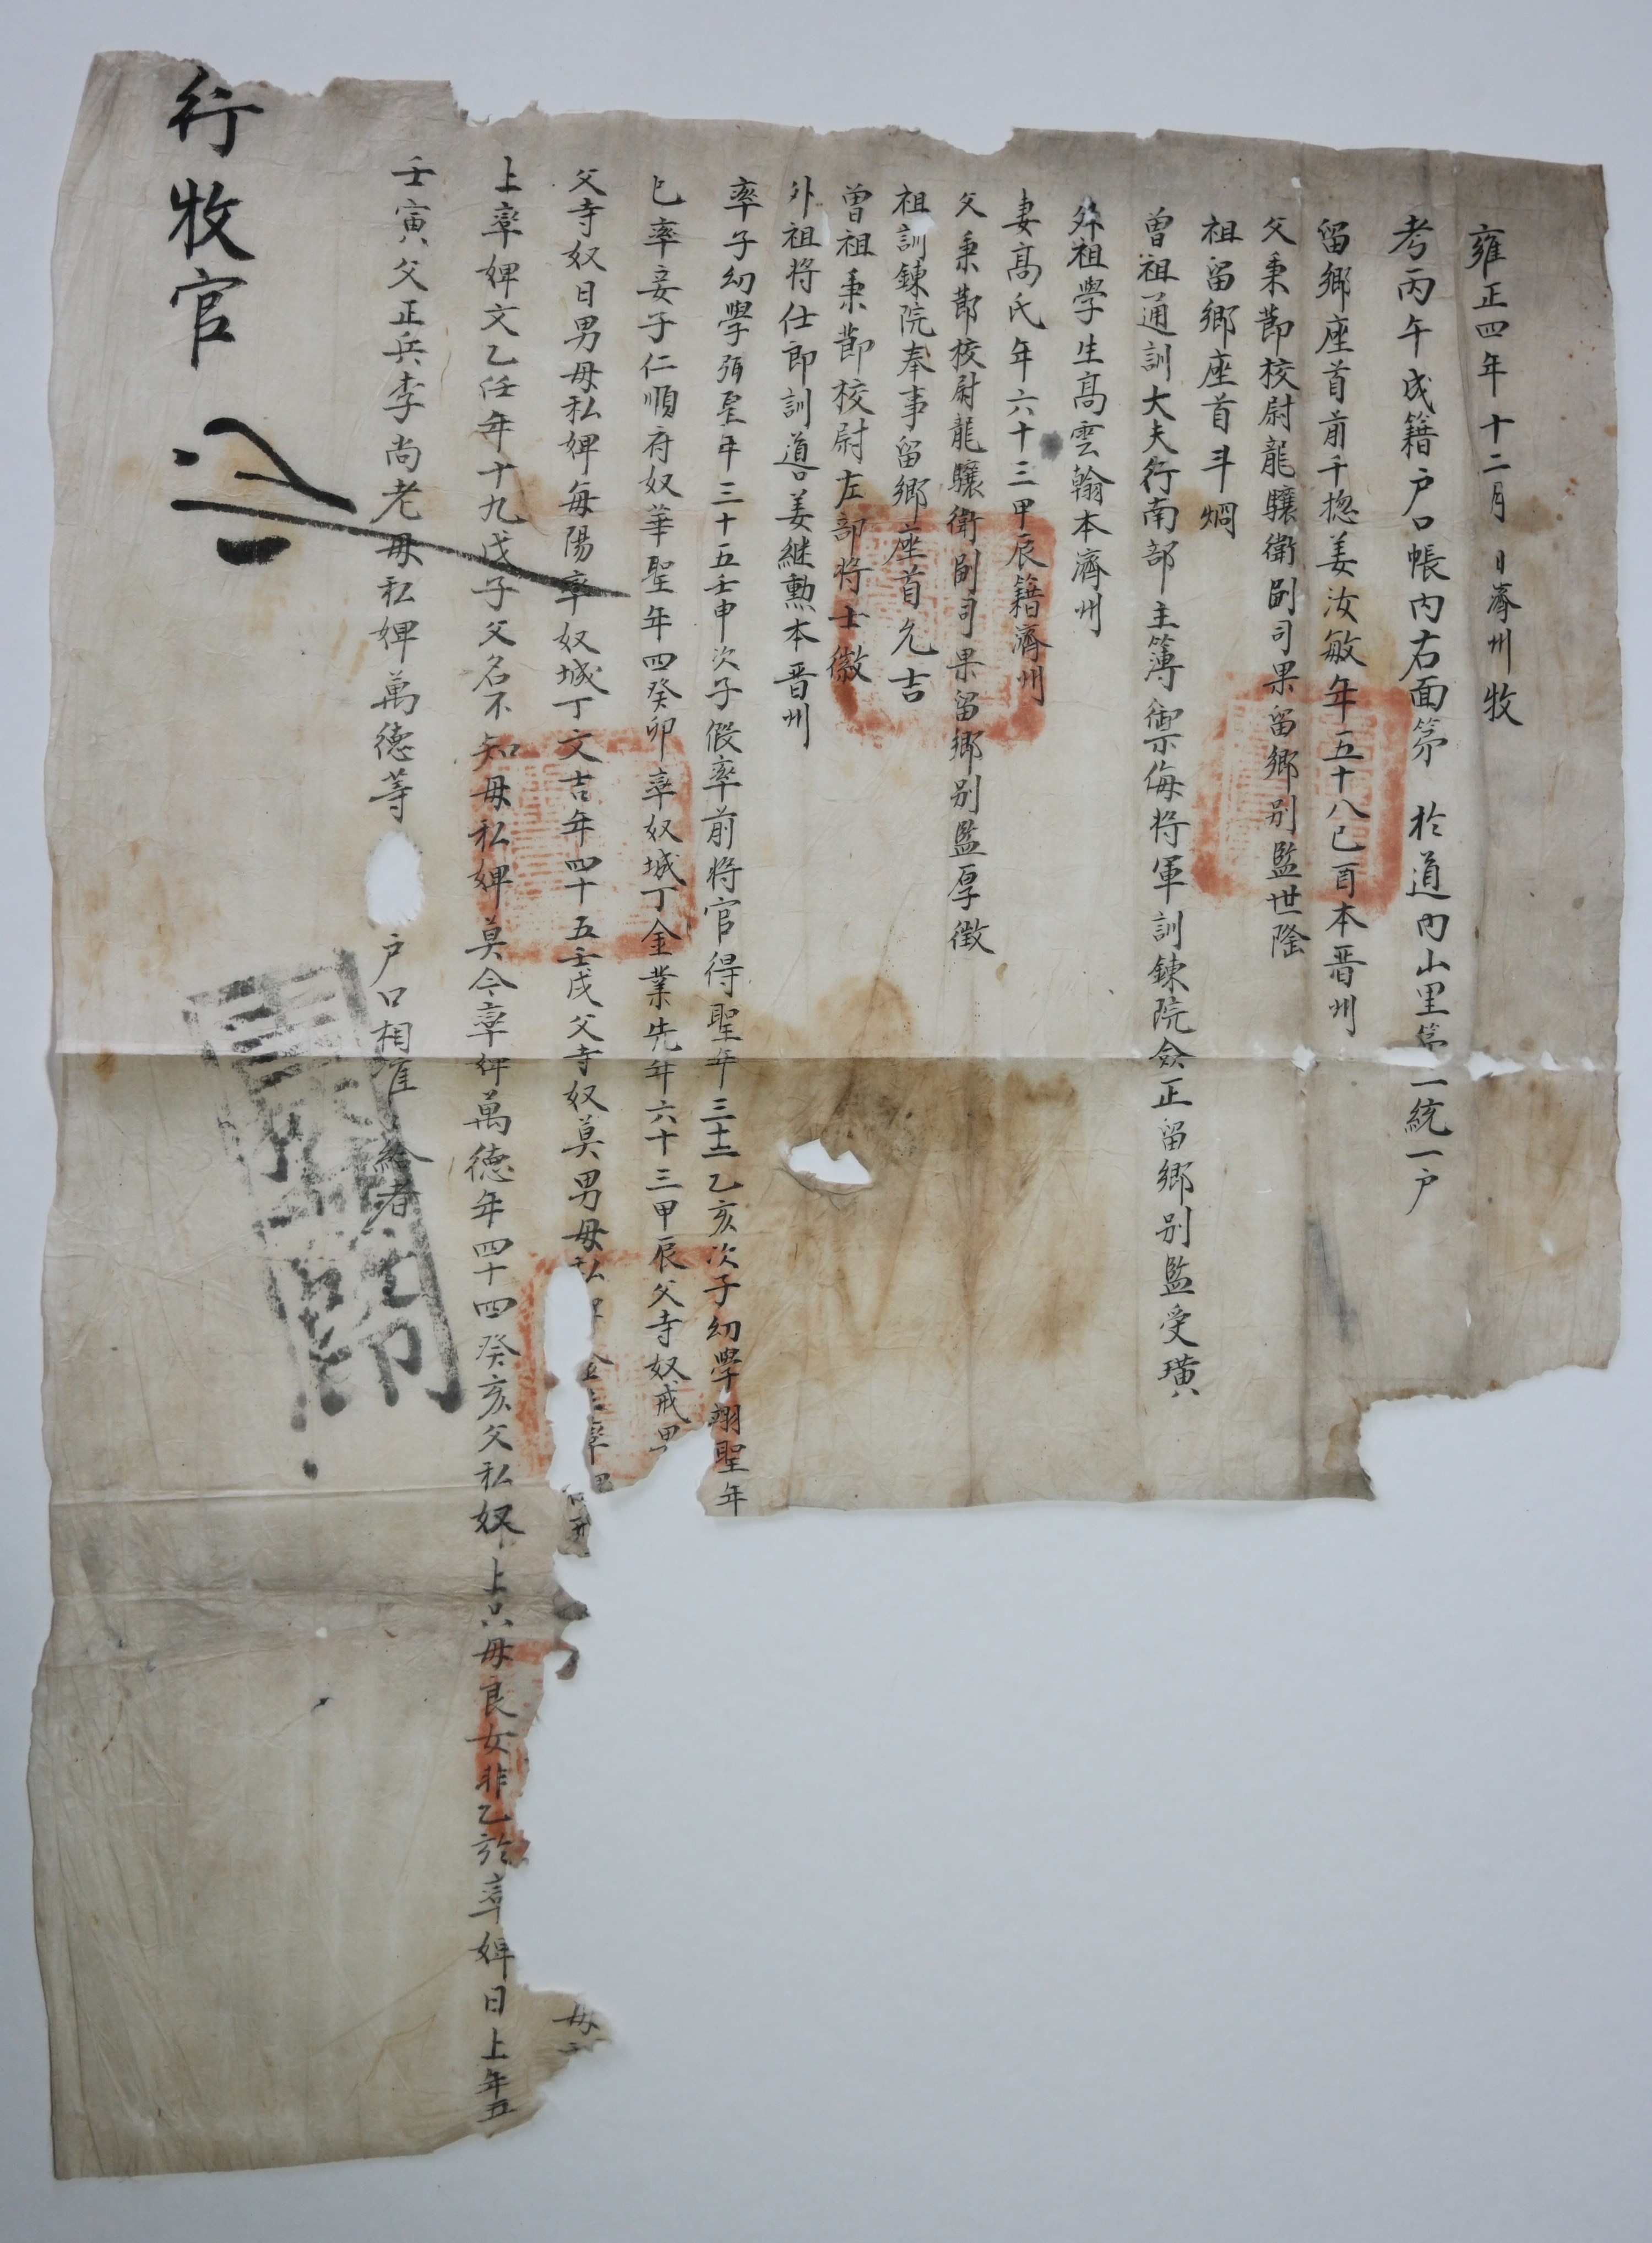 雍正四年十二月 日濟州牧
考丙午成籍户口帳內右面第 於道內山里第一統一户
留鄉座首前千摠姜汝敏年五十八己酉本晋州
父秉節校尉龍驤衛副司果留鄉别監世隆
祖留鄉座首斗烱
曾祖通訓大夫行南部主簿禦侮將軍訓鍊院僉正留鄉别監受璜
外祖學生髙雲翰本濟州
妻髙氏年六十三甲辰籍濟州
父秉節校尉龍驤衛副司果留鄉别監厚徵
祖訓鍊院奉事留鄉座首允吉
曾祖秉節校尉左部將士徽
外祖將仕郎訓道姜継勲本晋州
率子幼學弼聖年三十五壬申次子假率前將官得聖年三十二乙亥次子幼學翊聖年
巳率妾子仁順府奴華聖年四癸卯率奴城丁金業先年六十三甲辰父寺奴戒男
父寺奴日男母私婢每陽率奴城丁文吉年四十五壬戌父寺奴莫男母私 母
上率婢文乙任年十九戊子父名不知母私婢莫今率婢萬德年四十四癸亥父私奴上只母良女非乙於率婢日上年五
壬寅父正兵李尚老母私婢萬德等 户口相准給者
行牧官